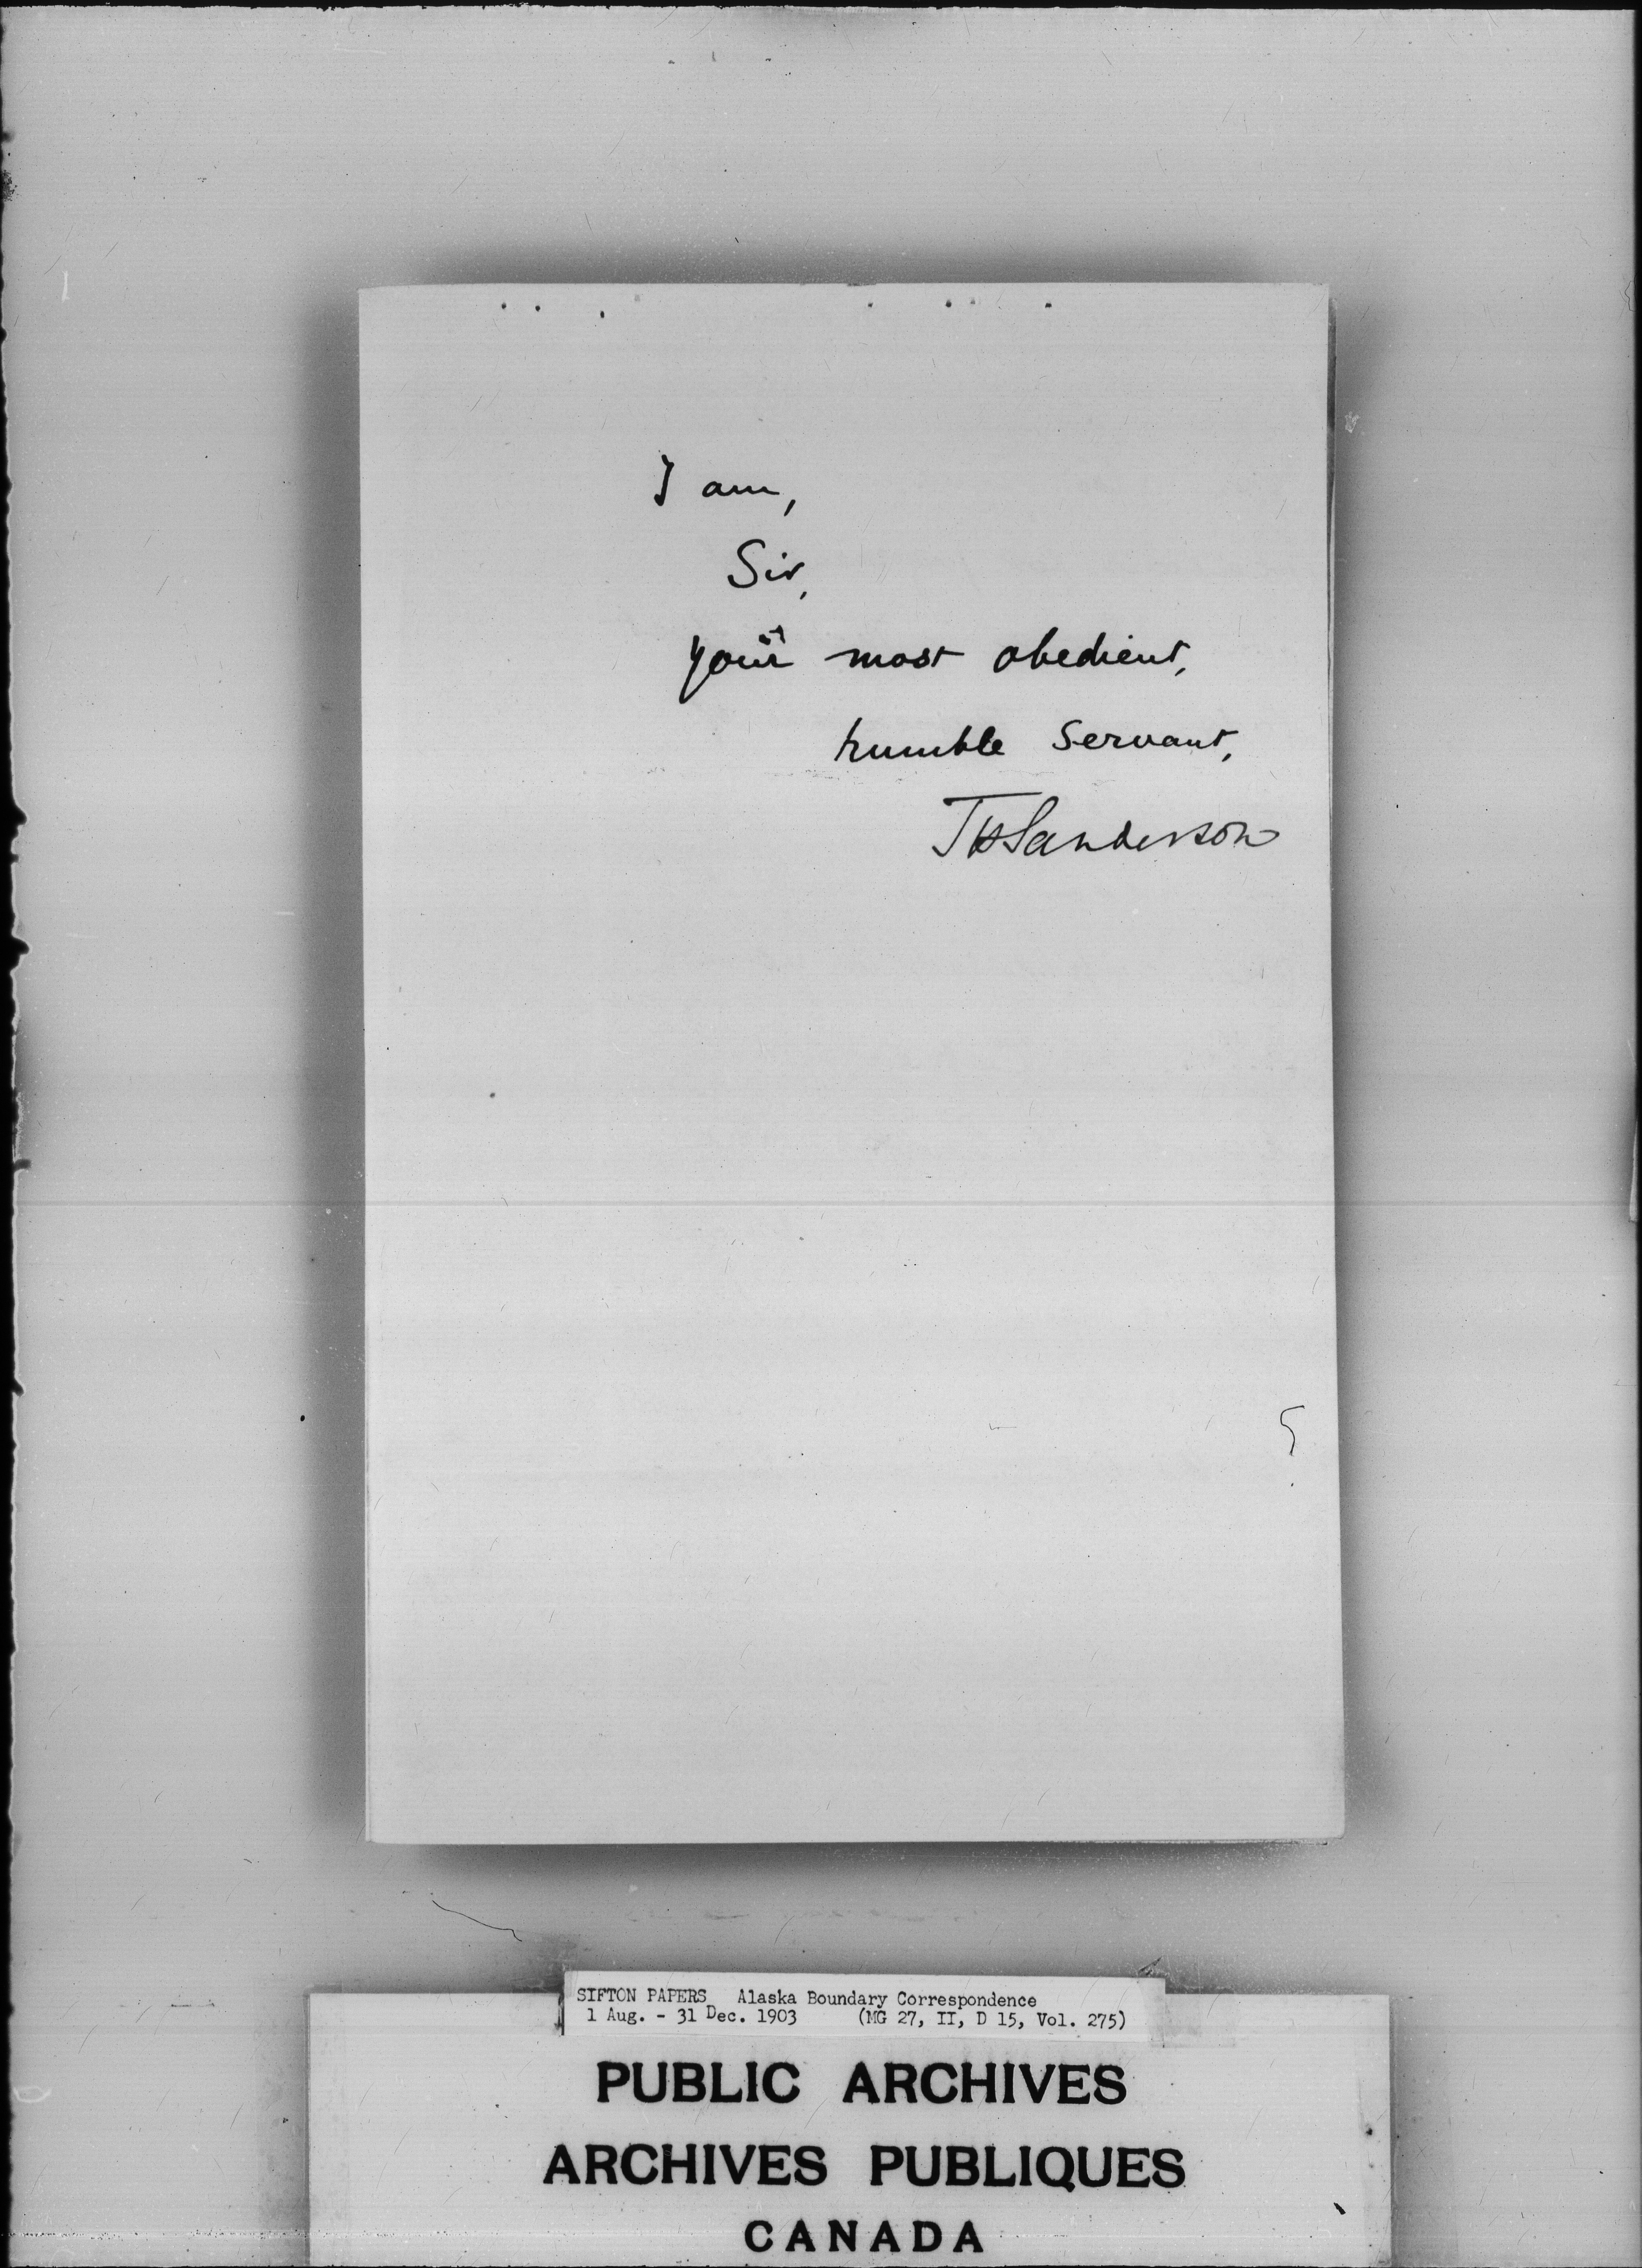 I am,
Sir,
Your most obedient,
humble Servant,
THSanderson
SIFTON PAPERS Alaska Boundary Correspondence
1 Aug. - 31 Dec. 1903 (MG 27, II, D 15, Vol. 275)
PUBLIC ARCHIVES
ARCHIVES PUBLIQUES
CANADA